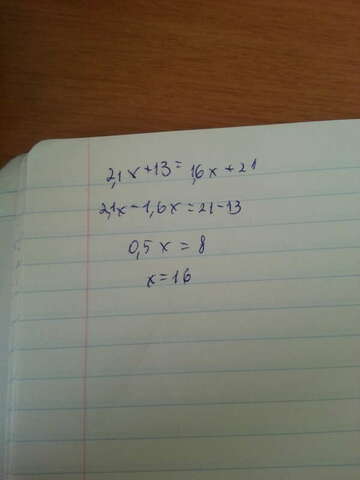 2,1x+13=1,6x+21
2,1x-1,6x=21-13
0,5x=8
x=16